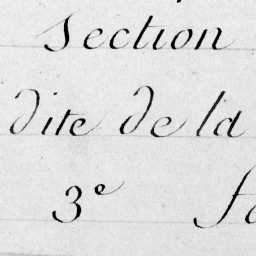 Section
dite de la
3e